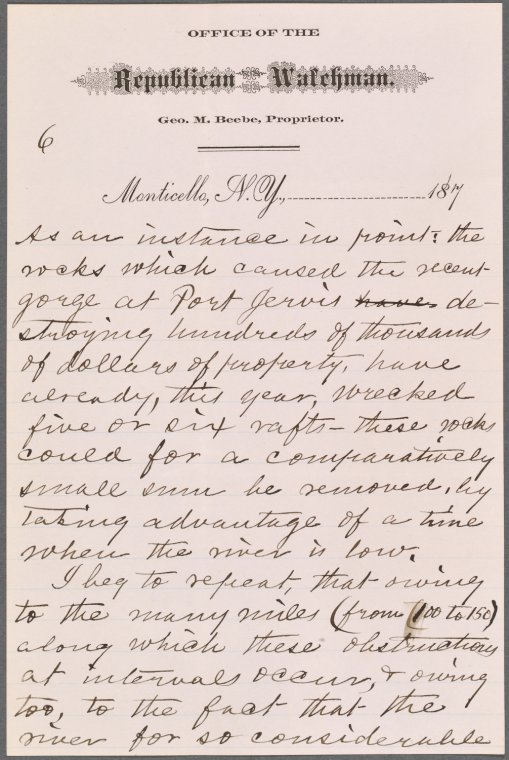 OFFICE OF THE
Republican Watchman.
Geo. M. Beebe, Proprietor.
6
Monticello, N.Y., 187
As an instance in point: the
rocks which caused the recent
gorge at Port Jervis have de-
stroying hundreds of thousands
of dollars of property, have
already, this year, wrecked
five or six rafts - these rocks
could for a comparatively
small sum be removed, by
taking advantage of a time
when the river is low.
I beg to repeat, that owing
to the many miles (from 100 to 150)
along which these obstructions
at intervals occur, & owing
too, to the fact that the
river for so considerable